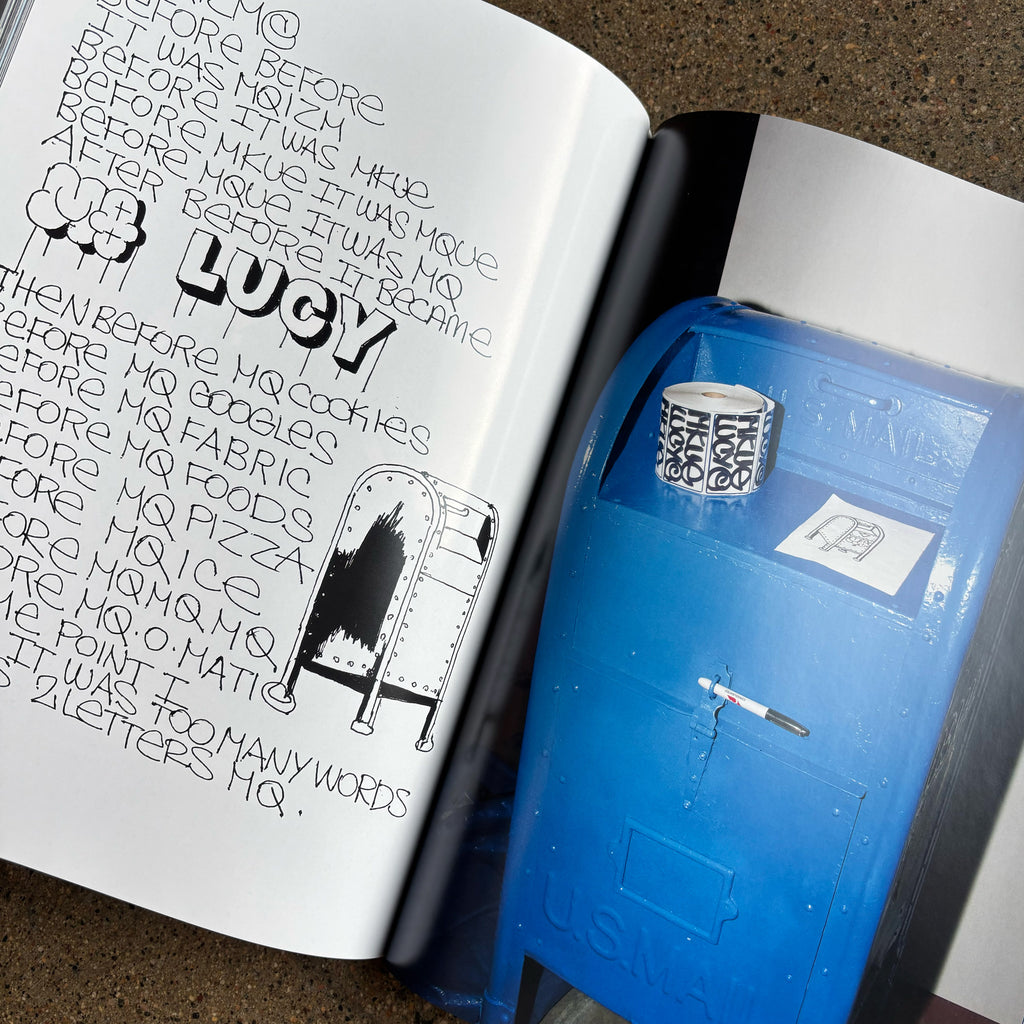 CM@
BEFORE BEFORE
IT WAS MQIZM
BEFORE IT WAS MKUE
BEFORE MKUE IT WAS MQUE
BEFORE MQUE IT WAS MQ
AFTER BEFORE IT BECAME
MQ LUCY
THEN BEFORE MQ COOKIES
BEFORE MQ GOOGLES
BEFORE MQ FABRIC
BEFORE MQ FOODS
BEFORE MQ PIZZA
BEFORE MQ ICE
FORE MQMQMQ
FORE MQ.O.MATIC
ME POINT I
IT WAS TOO MANY WORDS
S 2 LETTERS MQ.
MKUE
LUCY@
MKUE
LUCY@
U.S. MAIL
U.S. MAIL